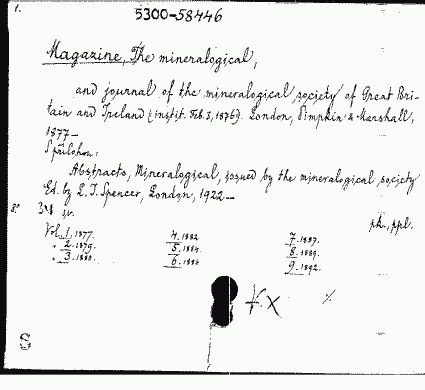 1.
5300-58446
Magazine, The mineralogical,
and journal of the mineralogical society of Great Bri-
tain and Ireland (instit. Feb. 3, 1876). London, Simpkin & Marshall,
1877—
S přílohou:
Abstracts, Mineralogical, issued by the mineralogical society
Ed. by L. J. Spencer, London, 1922—
8° sv. pk., ppl.
Vol. 1, 1877. 4. 1882 7. 1887.
" 2. 1879. 5. 1884. 8. 1889.
" 3. 1880. 6. 1886 9. 1892.
S